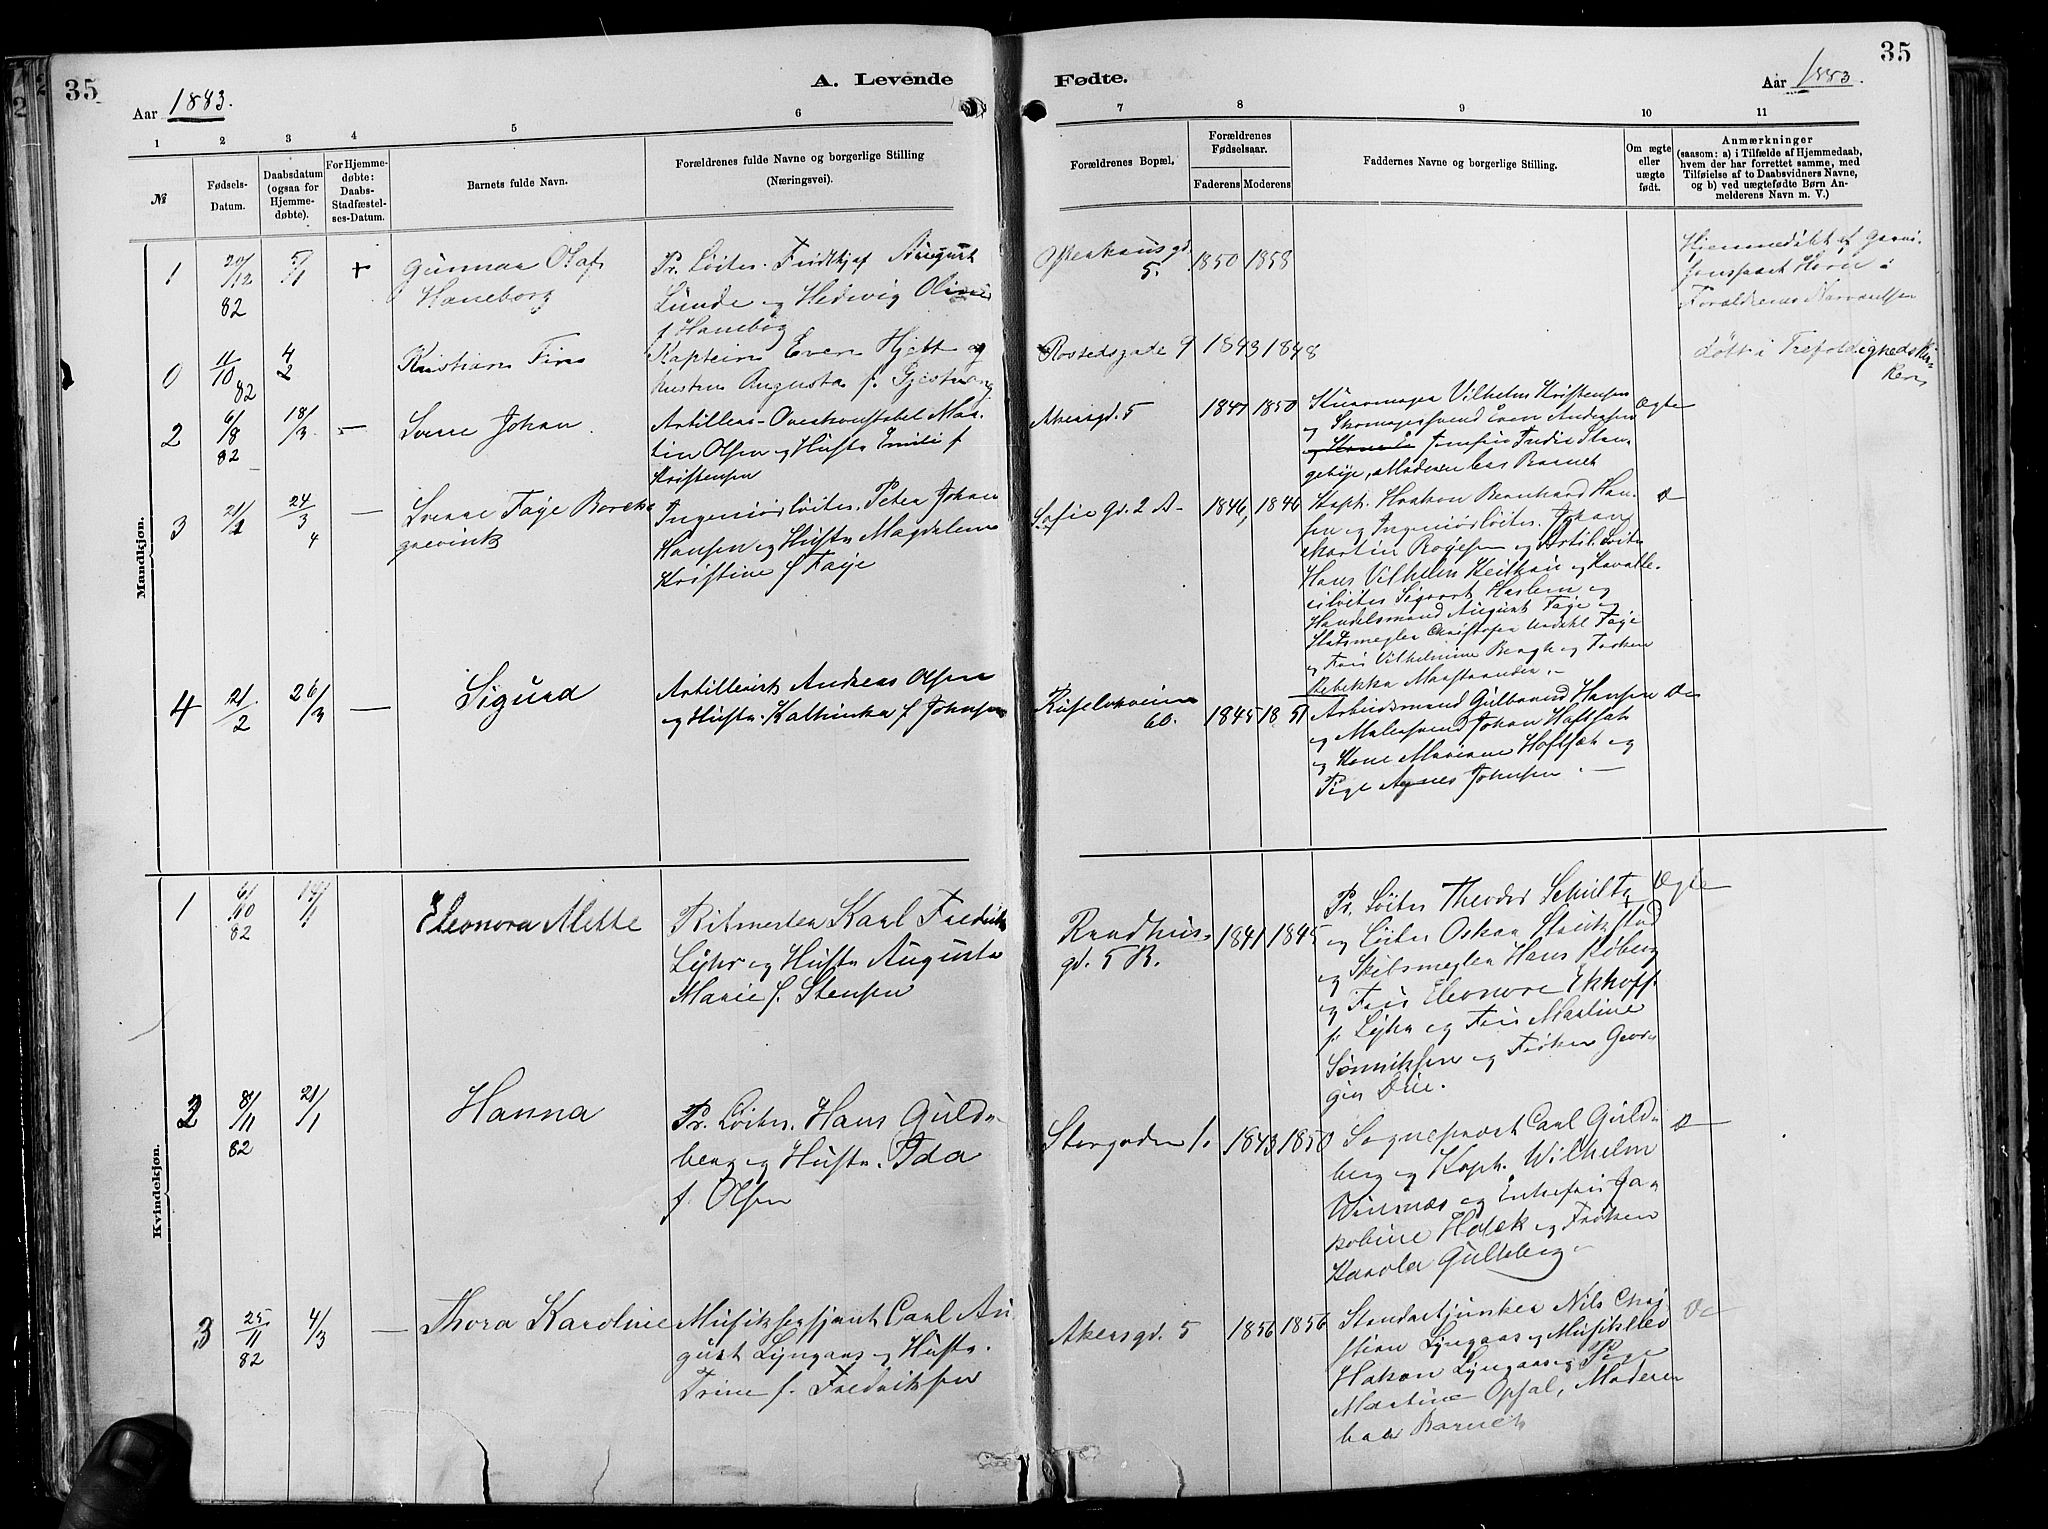 35
Aar 1883.
A. Levende
Fødte.
Aar 1883.
35
1 2 3 4 5 6 7 8 9 10 11
№
Fødsels-Datum.
Daabsdatum (ogsaa for Hjemmedøbte).
For Hjemmedøbte: Daabs-Stadfæstelses-Datum.
Barnets fulde Navn.
Forældrenes fulde Navne og borgerlige Stilling (Næringsvei).
Forældrenes Bopæl.
Forældrenes Fødselsaar.
Faderens Moderens
Faddernes Navne og borgerlige Stilling.
Om ægte eller uægte født.
Anmærkninger
(saasom: a) i Tilfælde af Hjemmedaab,
hvem der har forrettet samme, med
Tilføielse af to Daabsvidners Navne,
og b) ved uægtefødte Børn Anmelderens Navn m. V.)
Mandkjøn.
1 20/12 82 5/1 + Gunnar Olaf
Haneborg
Pr. Løitn. Fridthjof August
Lunde og Hedvig
f. Haneborg
5. 1850 1858
Hjemmedøbt af Garni-
sonspræst Horn i
Forældrenes Nærværelse
0 11/10 82 4/2 Kristian Finn
Kaptein Even Hjelt og
Hustru Augusta f. Gjestvang
Rostedsgade 9 1843 1848
døbt i Trefoldigheds Kir-
ken
2 6/8 82 18/3 — Sverre Johan
Artilleri-Overkonstabel Mar-
tin Olsen og Hustr. Emilie f.
Kristensen
Akersgd. 5 1847 1850
Vilhelm Kristensen
og Skomagersvend Even Andersen
Jomfru
Moderen bar Barnet
Ægte
3 21/1 24/3 4 — Sverre Faye
Ingeniørløitn. Peter Johan
Hansen og Hustr. Magdalene
Kristine f. Faye
Sofie gd. 2 A 1846, 1846
Kapt. Haakon Bernhard Han-
sen og Ingeniørløitn. Johan
Martin og Artil. Løitn
Hans Vilhelm og Kavalle-
riløitn Sigvart Haslem og
Handelsmand August Faye og
Christofer Faye
og Frue Vilhelmine Bergh og Frøken
Rebekka
4 21/2 26/3 — Sigurd
Artillerist Andreas Olsen
og Hustr. Kathinka f. Johnsen
60. 1845 1851
Arbeidsmand Gulbrand Hansen
og Malersvend Johan
og Kone Mariane og
Pige Agnes Johnsen. —
Do
Kvindekjøn.
1 6/10 82 14/1 Eleonora Mette
Ritmester Karl Fredrik
Lyhr og Hustr. Augusta
Marie f. Stensen
Raadhus-
gd. 5 B. 1841 1845
Pr. Løitn Theodor Schultz
og Løitn Oskar
og Skibsmegler Hans
og Frue Eleonore Ekhoff
f. Lyhr og Frue Martine
og Frøken Geor-
gin Due.
Ægte
2 8/11 82 21/1 Hanna
Pr. Løitn. Hans Guld-
berg og Hustr. Ida
f. Olsen
Storgaden 1. 1843 1850
Sogneprest Carl Guld-
berg og Kapt. Wilhelm
Winsnæs og Enkefrue Ja-
kobine Holck og Frøken
Karola Guldberg
3 25/11 82 4/3 — Thora Karoline
Musiksersjant Carl Au-
gust Lyngaas og Hustr.
Trine f. Fredriksen
Akersgd. 5 1856 1856
Standartjunker Nils Chri-
stian Lyngaas og Musikelev
Hakon Lyngaas og Pige
Martine Opsal, Moderen
bar Barnet
Do